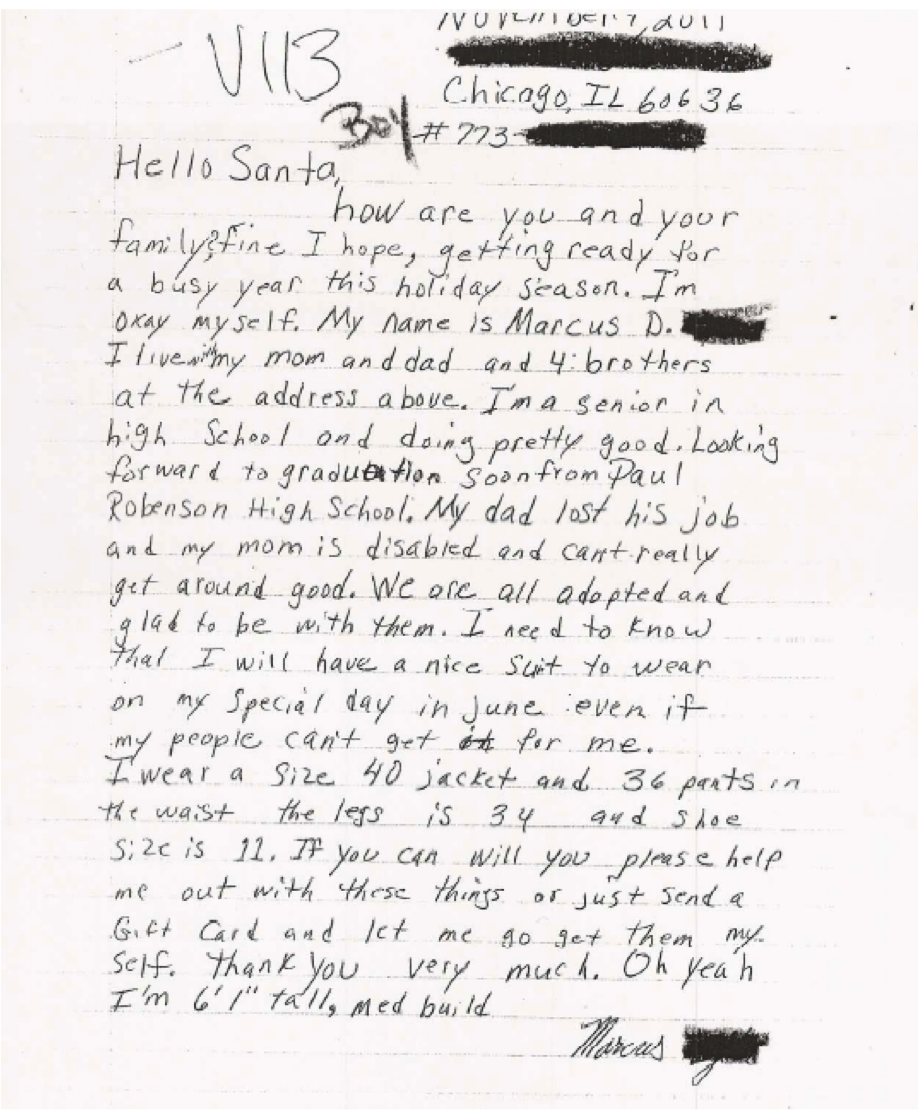 November 9, 2011
V113
Chicago, IL 60636
Boy
# 773-
Hello Santa,
how are you and your
family? Fine I hope, getting ready for
a busy year this holiday season. I'm
okay myself. My name is Marcus D.
I live with my mom and dad and 4 brothers
at the address above. I'm a senior in
high School and doing pretty good. Looking
forward to gradutation soon from Paul
Robenson High School. My dad lost his job
and my mom is disabled and cant really
get around good. We are all adopted and
glad to be with them. I need to know
that I will have a nice suit to wear
on my special day in june even if
my people can't get it for me.
I wear a size 40 jacket and 36 pants in
the waist the legs is 34 and shoe
size is 11. If you can will you please help
me out with these things or just send a
Gift Card and let me go get them my-
self. Thank you very much. Oh yeah
I'm 6'1" tall, med build
Marcus